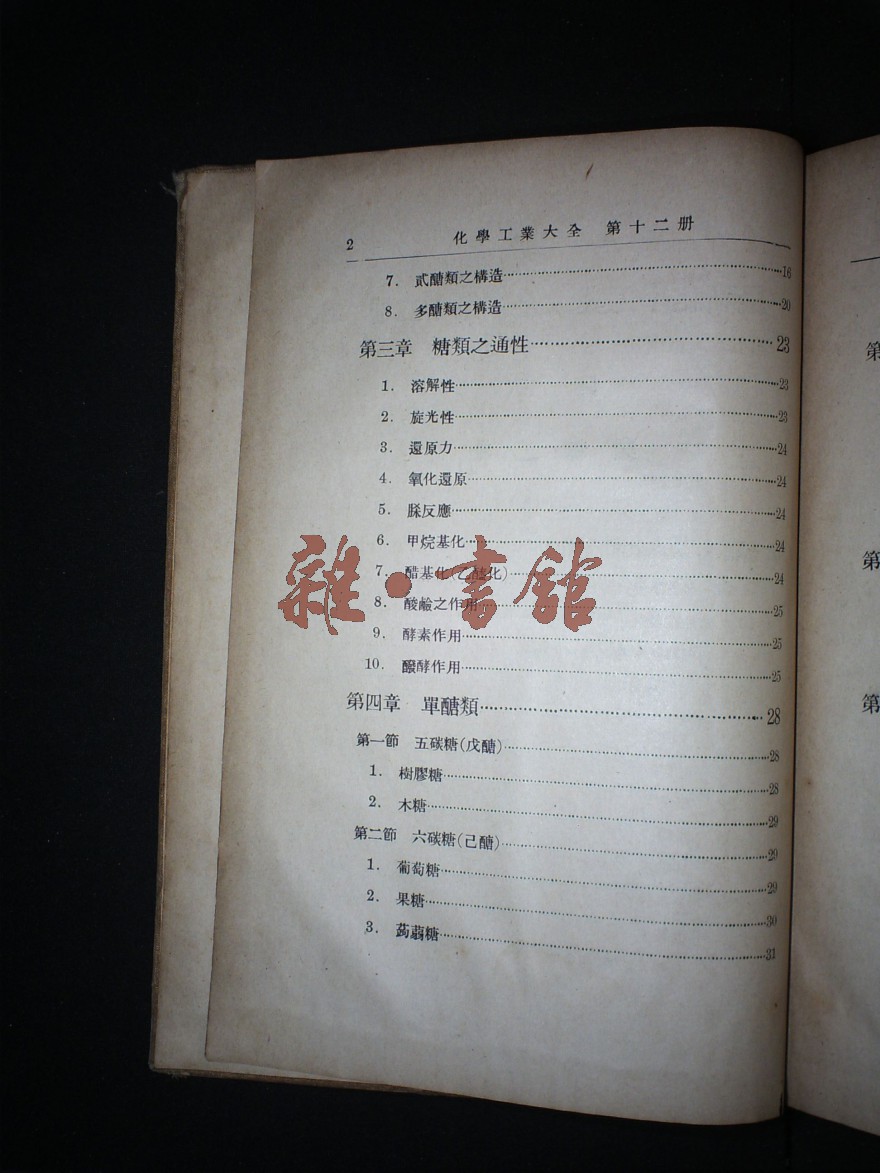 2 化學工業大全 第十二册
7. 貳醣類之構造……16
8. 多醣類之構造……20
第三章 糖類之通性……23
1. 溶解性……23
2. 旋光性……23
3. 還原力……24
4. 氧化還原……24
5. 脎反應……24
6. 甲烷基化……24
7. 醋基化(乙酸化)……24
8. 酸鹼之作用……25
9. 酵素作用……25
10. 醱酵作用……25
第四章 單醣類……28
第一節 五碳糖(戊醣)……28
1. 樹膠糖……28
2. 木糖……29
第二節 六碳糖(己醣)……29
1. 葡萄糖……29
2. 果糖……30
3. 蒟蒻糖……31
雜·書館
第
第
第